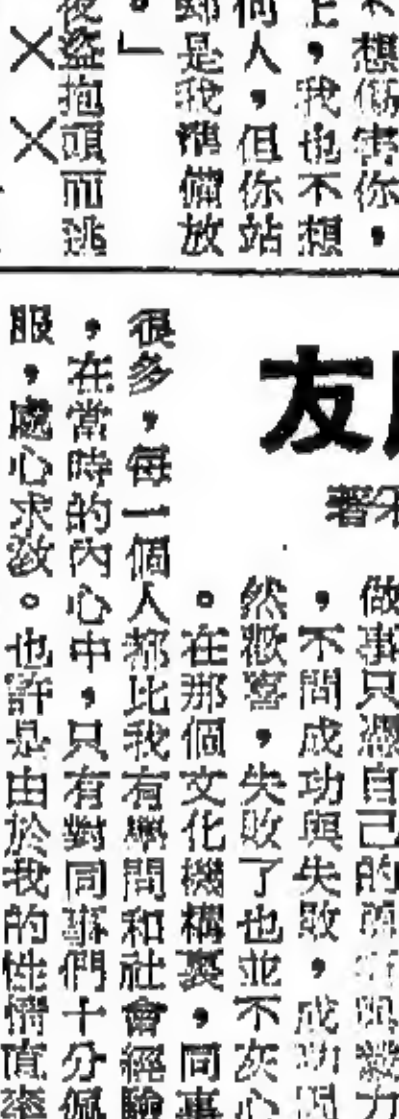 不想傷害你，
上，我也不想
何人，但你站
郵是我準備放
。」
夜盜抱頭而逃
××
友
著
做事只憑自己的
，不問成功與失敗，成功固
然歡喜，失敗了也並不灰心
。在那個文化機構裏，同事
很多，每一個人都比我有學問和社會經驗
，在當時的內心中，只有對同事們十分佩
服，處心求教。也許是由於我的性情直率